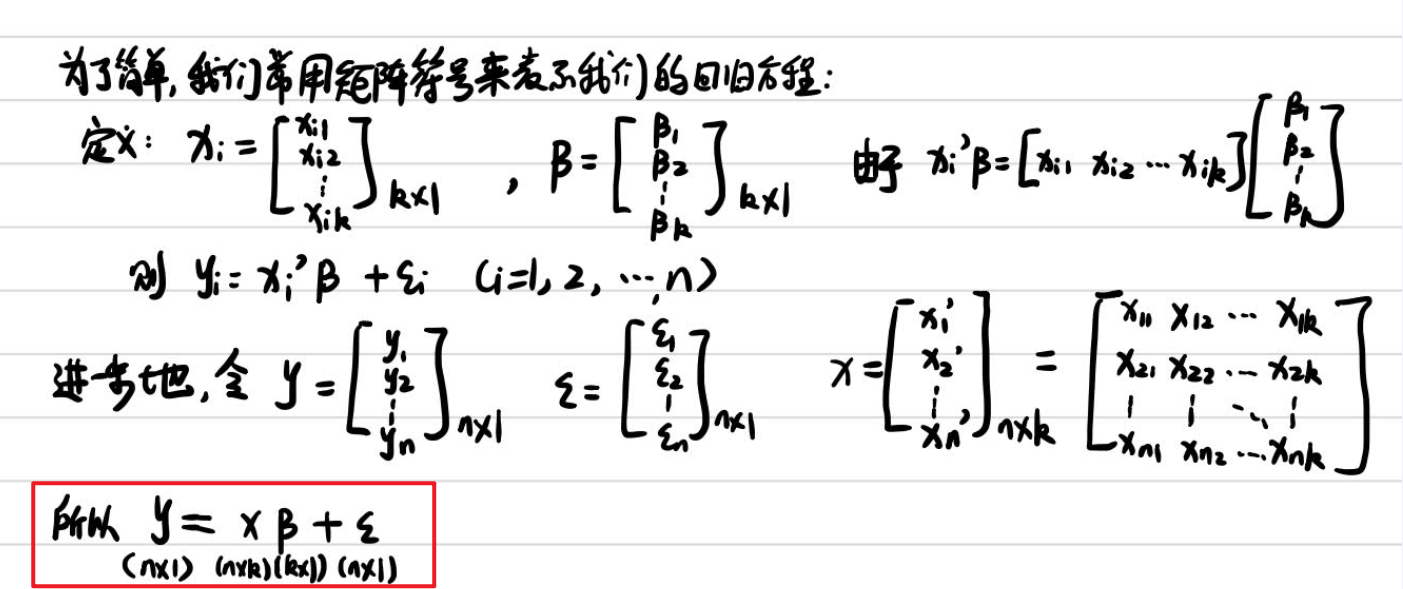 为了简单,我们常用矩阵符号来表示我们的回归方程:
定义: x_i = [x_{i1} x_{i2} ⋮ x_{ik}]_{k×1} , β = [β_1 β_2 ⋮ β_k]_{k×1} 由于 x_i'β = [x_{i1} x_{i2} ⋯ x_{ik}] [β_1 β_2 ⋮ β_k]
则 y_i = x_i'β + ε_i (i=1, 2, ⋯ n)
进一步地,令 y = [y_1 y_2 ⋮ y_n]_{n×1} ε = [ε_1 ε_2 ⋮ ε_n]_{n×1} x = [x_1' x_2' ⋮ x_n']_{n×k} = [x_{11} x_{12} ⋯ x_{1k} x_{21} x_{22} ⋯ x_{2k} ⋮ ⋮ ⋱ ⋮ x_{n1} x_{n2} ⋯ x_{nk}]
所以 y = x β + ε
(n×1) (n×k)(k×1) (n×1)